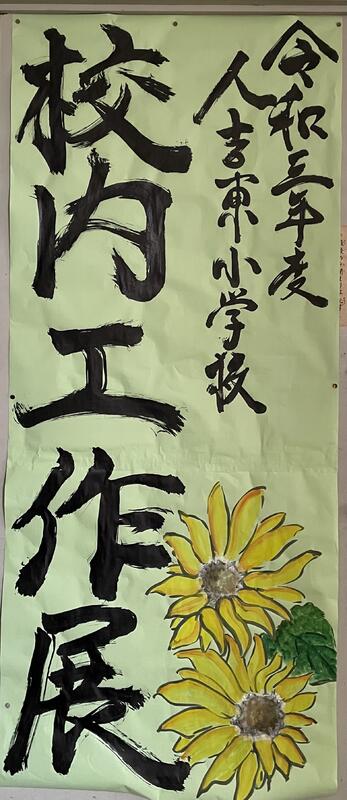 令和三年度
人吉東小学校
校内工作展